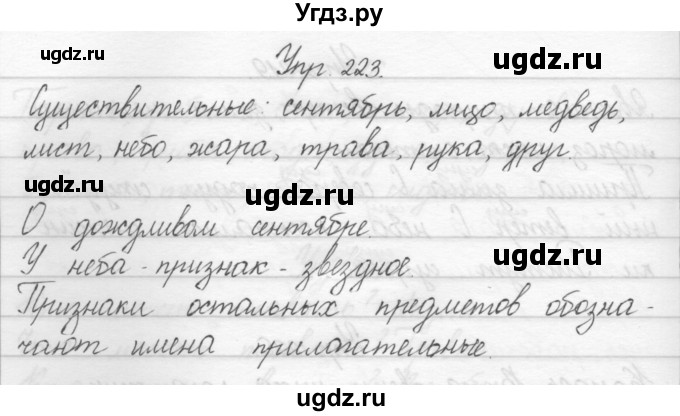 Угдз.ру
ugdz.ru ugdz.ru
Упр. 223.
Существительные: сентябрь, лицо, медведь,
лист, небо, жара, трава, рука, друг.
ugdz.ru ugdz.ru
О дождливом сентябре.
У неба - признак - звездное.
Признаки остальных предметов обозна-
чают имена прилагательные.
ugdz.ru ugdz.ru